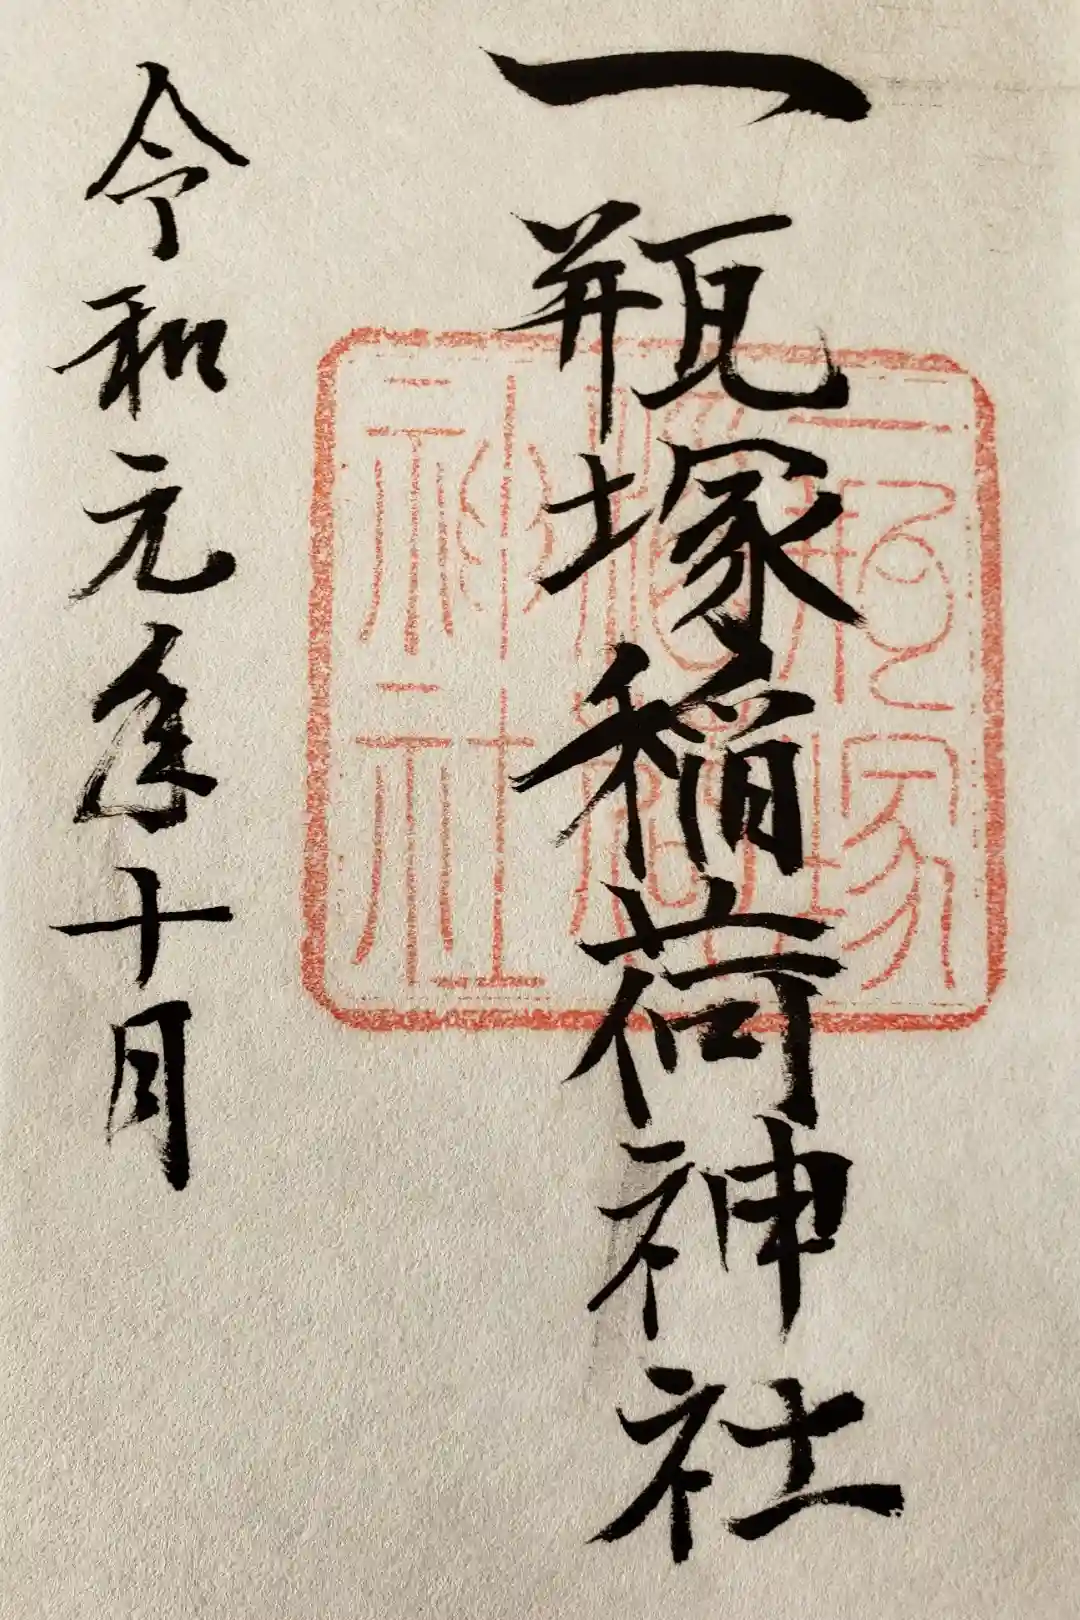 一瓶塚稲荷神社
令和元年十月
一瓶塚
稲荷
神社